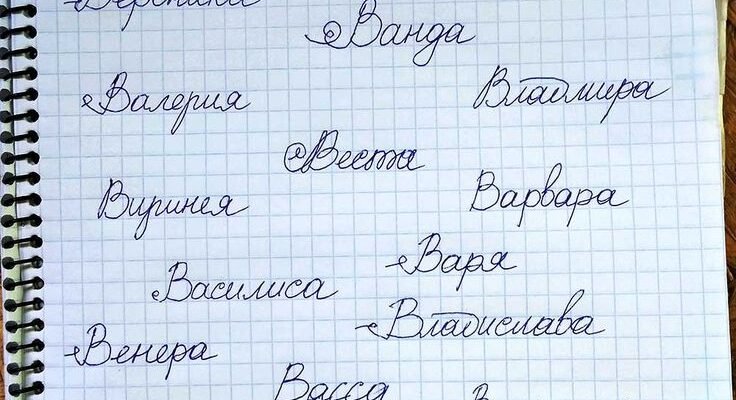 Вероника
Ванда
Валерия Владмира
Веста
Виринея Варвара
Варя
Василиса
Владислава
Венера
Васса